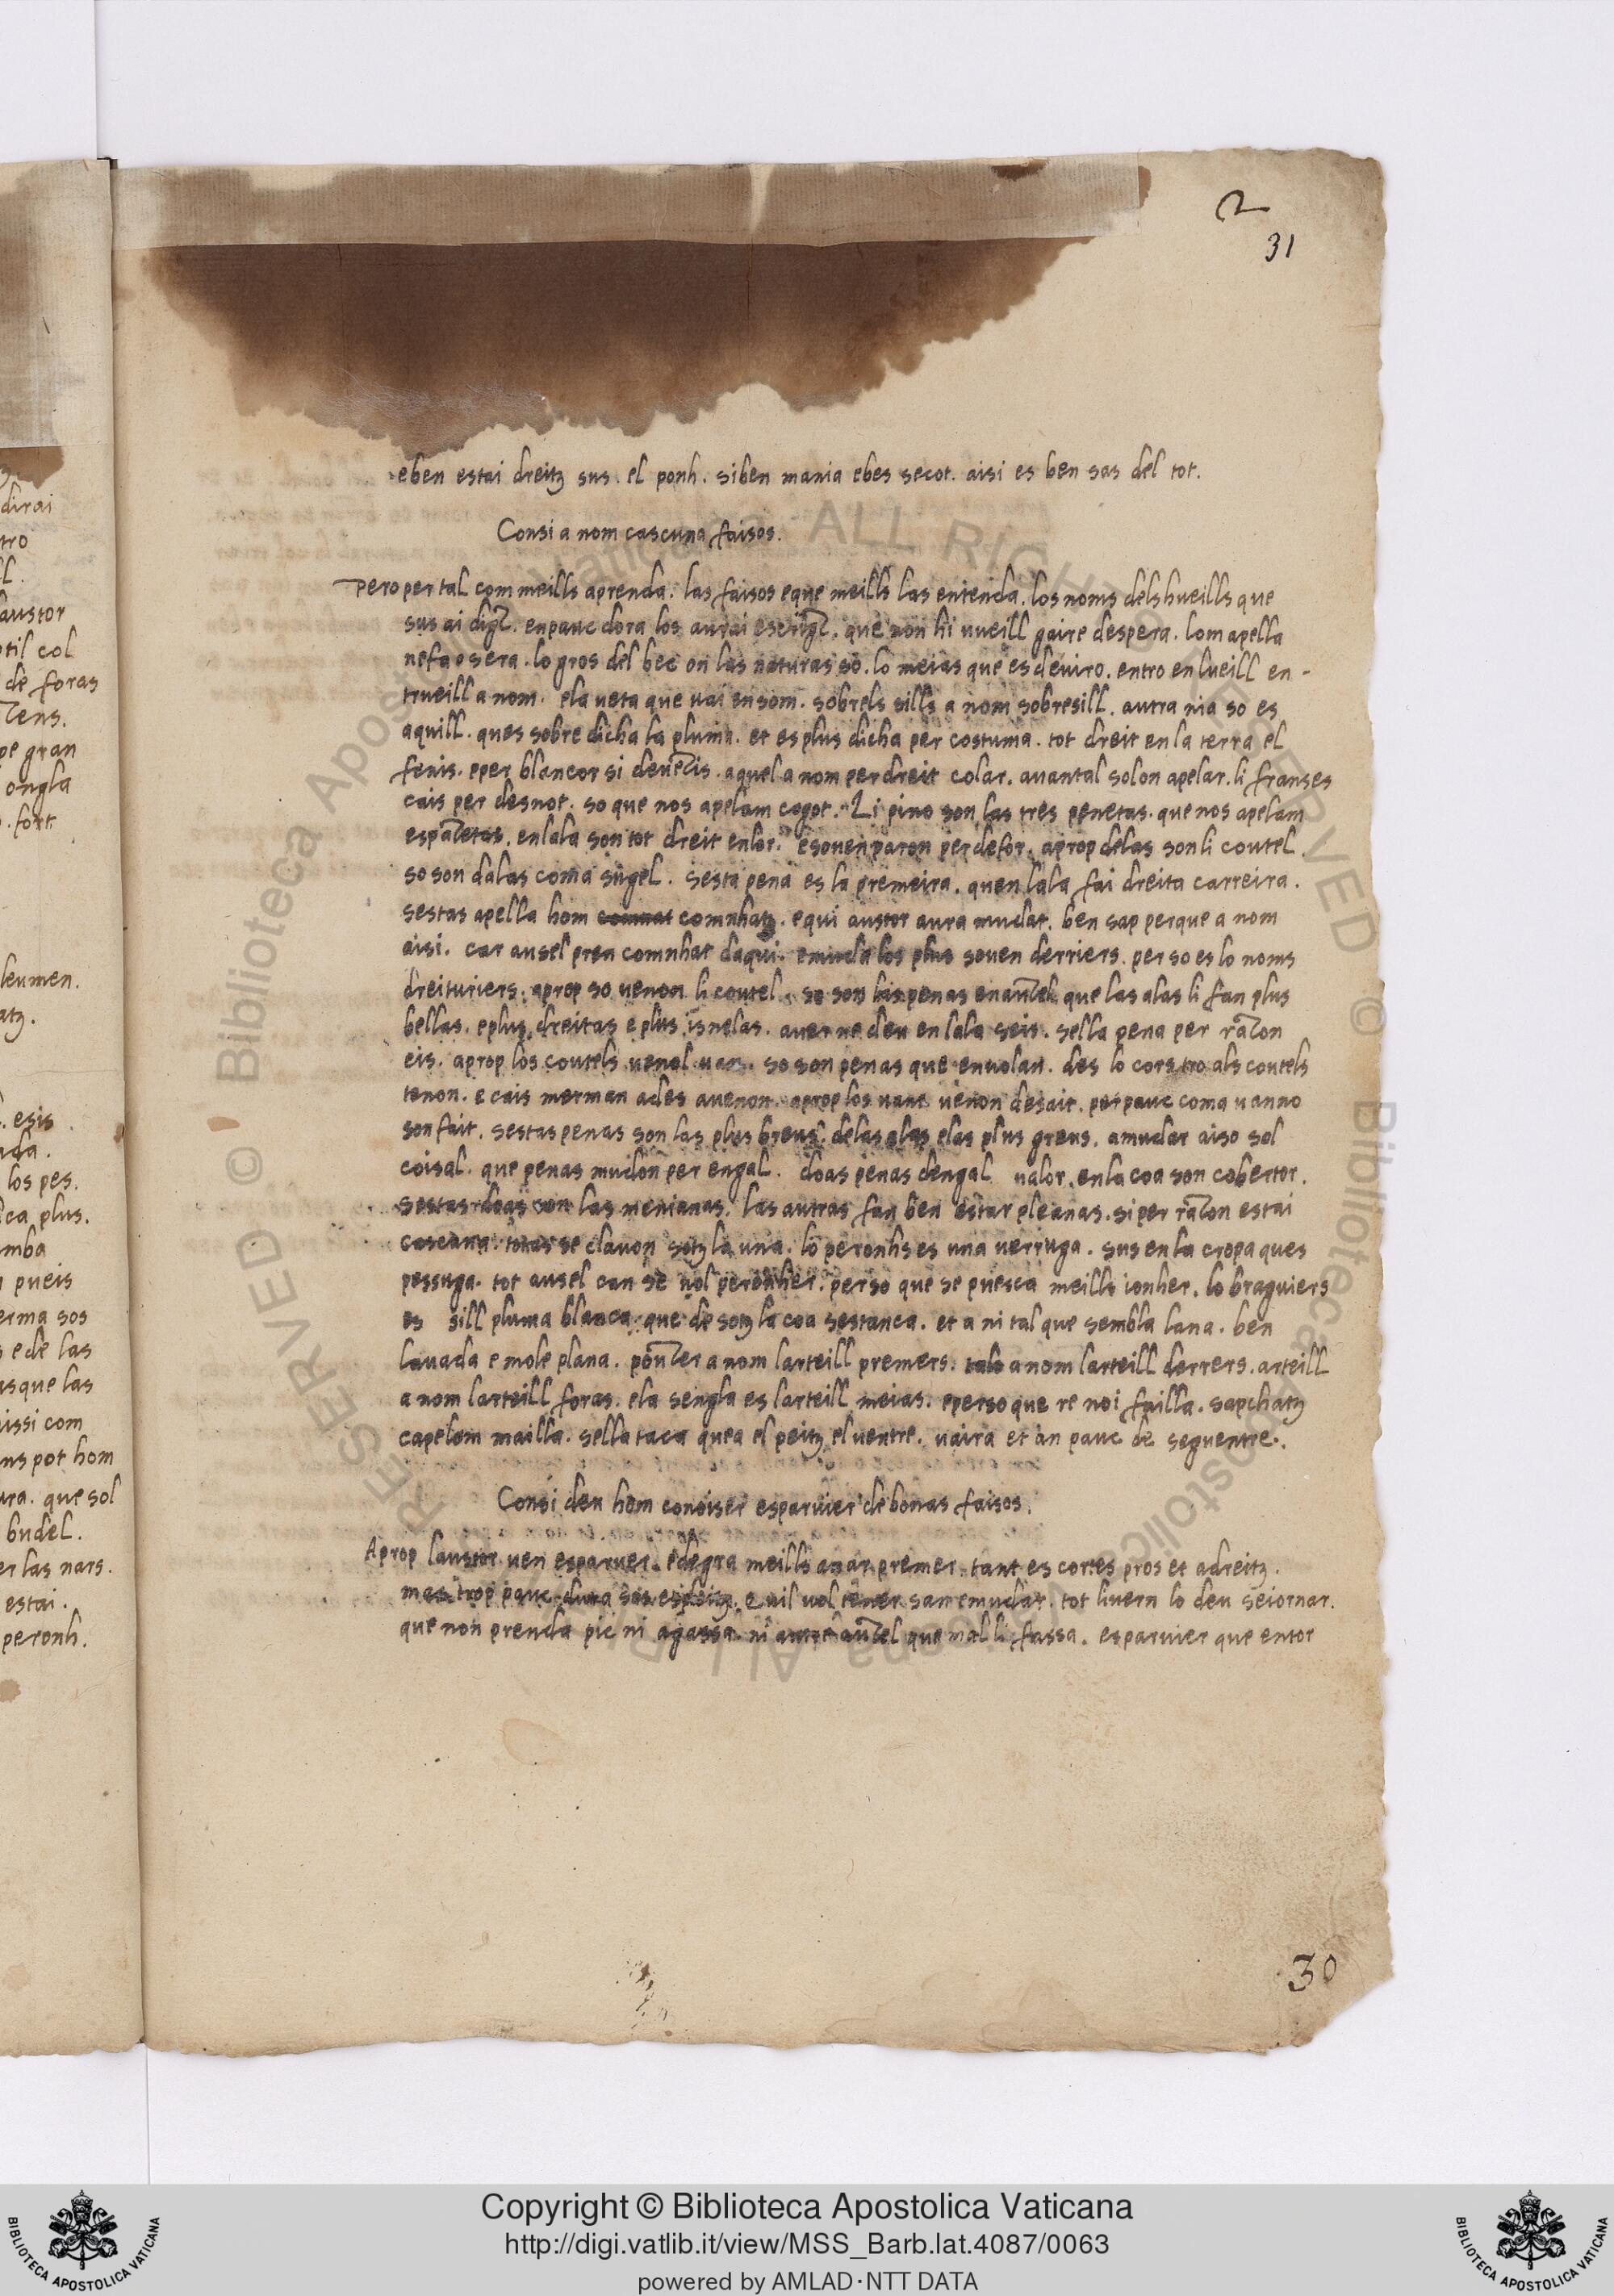 2
31
eben estai dreitz sus. el ponh. siben mania ebes secot. aisi es ben sas del tot.
Consi a nom cascuna faisos.
Pero per tal com meills aprenda. las faisos eque meills las entenda. los noms dels hueills que
sus ai digz. enpauc dora los aurai escrigz. que non hi uueill gaire despera. lom apella
nefa o sera. lo gros del bec on las naturas so. lo meias que es deuiro. entro en lueill en-
trueill a nom. ela ueta que uai ensom. sobrels sills a nom sobresill. autra nia so es
aquill. ques sobre dicha la pluma. et es plus dicha per costuma. tot dreit en la terra el
fenis. eper blancor si deuezis. aquel a nom per dreit colar. auantal solon apelar. li franses
cais per desnot. so que nos apelam cogot. Li pino son las tres penetas. que nos apelam
espazetas. en lala son tot dreit enlor. esouen paron per defor. aprop delas son li coutel.
so son dalas coma sugel. sesta pena es la premeira. quen lala fai dreita carreira.
sestas apella hom comnhatz. equi austor aura mudat. ben sap perque a nom
aisi. car ausel pren comnhat daqui. emuda los plus souen derriers. per so es lo noms
dreituriers. aprop so uenon li coutel. so son las penas enauzel que las alas li fan plus
bellas. eplus dreitas e plus isnelas. auer ne deu en lala seis. sella pena per razon
eis. aprop los coutels uenol uan. so son penas que enuolan. des lo cors tro als coutels
tenon. e cais merman ades auenon. aprop los uans uenon desait. per pauc coma uanno
son fait. sestas penas son las plus breus. delas alas elas plus greus. amudar aiso sol
coisal. que penas mudon per engal. doas penas dengal ualor. enla coa son cobertor.
sestas doas son las meianas. las autras fan ben estar pleianas. si per razon estai
cascuna. totas se clauon sotz la una. lo peronhs es una uerruga. sus en la cropa ques
pessuga. tot ausel can se uol peronher. perso que se puesca meills ionher. lo braguiers
es sill pluma blanca. que de sotz la coa sestanca. et a ni tal que sembla lana. ben
lauada e mole plana. pouzer a nom larteill premers. talo a nom larteill derrers. arteill
a nom larteill foras. ela sengla es larteill meias. eperso que re noi failla. sapchatz
capelom mailla. sella taca quea el peitz el uentre. uaira et an pauc de seguentre.
Consi deu hom conoiser esparuier de bonas faisos.
Aprop laustor uen esparuer. edegra meills anar premer. tant es cortes pros et adreitz.
mas trop pauc dura sos espleitz. quil uol tener san emudar. tot liuern lo deu seiornar.
que non prenda pic ni agassa. ni autre auzel que mal li fassa. esparuier que entor
30
Copyright © Biblioteca Apostolica Vaticana
http://digi.vatlib.it/view/MSS_Barb.lat.4087/0063
powered by AMLAD·NTT DATA